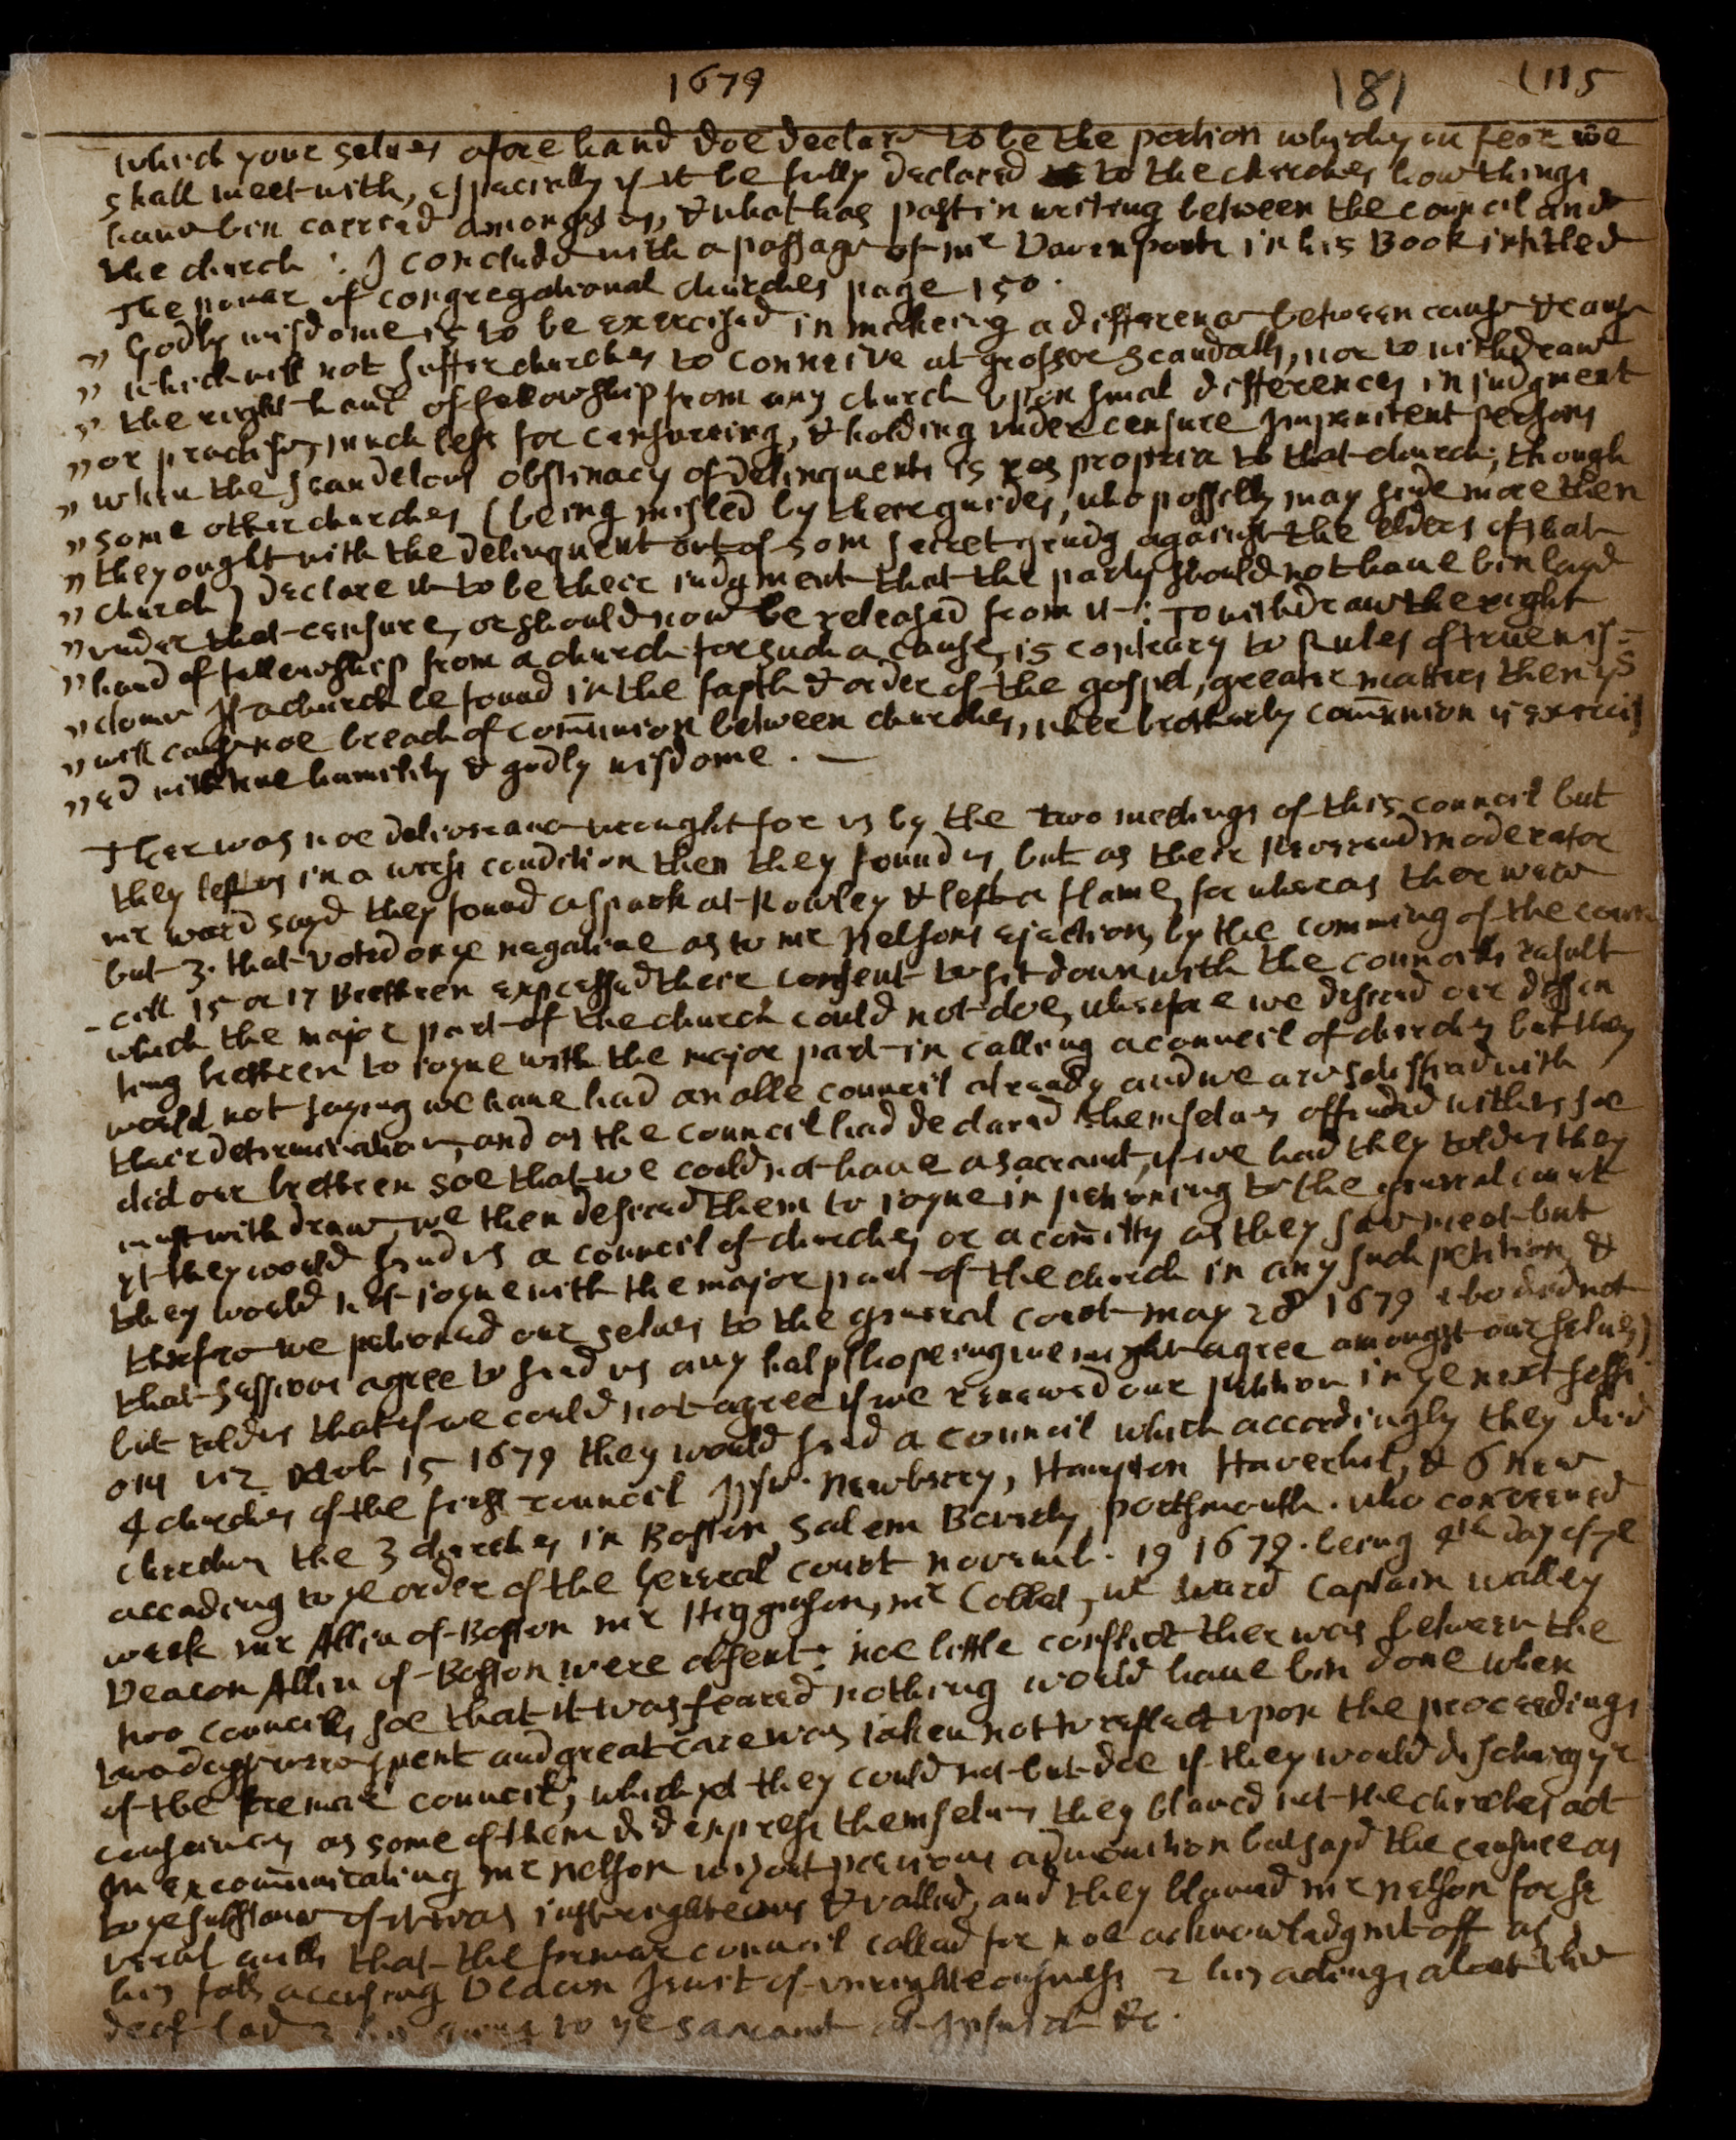 1679 181 (115
which your selves afore hand doe declare to be the portion which you fear we
shall meet with, especially if it be fully declared to the churches how things
have bin carried amongst us, & what has past in writing between the council and
the church : I conclude with a passage of mr Davenports in his Book intitled
The power of congregational churches page 150.
" Godly wisdome is to be exercised in makeing a difference between cause & cause
" which will not suffer churches to connive at grosser scandalls, nor to withdraw
" the right hand of fellowship from any church upon smal differences in judgment
" or practise, much less for censureing, & holding under censure Impenitent persons
" when the scandelous obstinacy of delinquents is res propria to that church; though
" some other churches (being misled by there guides, who possibly may side more then
" they ought with the delinquent out of som secret grudg against the elders of that
" church) declare it to be their judgment that the party should not have bin layd
" under that censure, or should now be released from it : To withdraw the right
" hand of fellowship from a church for such a cause, is contrary to Rules of true wis=
" dome If a church be found in the fayth & order of the gospel, greater matters then ys
" will cause noe breach of com̄union between churches, wher brotherly com̄union is exercis
" ed with true humility & godly wisdome . —
Ther was noe deliverance wrought for us by the two meetings of this council but
they left us in a worse condition then they found us, but as their Reverend moderator
mr ward sayd they found a spark at Rowley & left a flame, for wheras ther were
but 3. that voted on ye negative as to mr Nelsons ejection, by the comming of the coun
- cill 15 or 17 Brethren expressed their consent to sit down with the councills result
which the major part of the church could not doe, wherefore we desired our dissen
ting brethren to joyne with the major part in calling a council of churches but they
would not saying we have had an able council already and we are satisfied with
their determination, and as the council had declared themselves offended with us soe
did our brethren soe that we could not have a sacramt, if we had they told us they
must withdraw, we then desired them to joyne in petioning to the general court
yt they would send us a council of churches or a com̄itty as they saw meet but
they would not joyne with the major part of the church in any such petition, &
therfore we petioned our selves to the general court may 28 1679 who did not
that session agree to send us any help (hopeing we might agree amongst our selves)
but told us that if we could not agree if we renewed our petition in ye next sessi
ons viz Octob 15 1679 they would send a council which accordingly they did
4 churches of the first council Ipsw. Newberry, Hampton Haverhil, & 6 new
churches the 3 churches in Boston, Salem Beverly portsmouth. who convened
according to ye order of the General court novemb. 19 1679. being 4th day of ye
week mr Allin of Boston mr Higginson, mr Cobbet, mr ward Captain walley
Deacon Allin of Boston were absent : noe little conflict ther was between the
two councills soe that it was feared nothing would have bin done when
two dayes were spent and great care was taken not to reflect upon the proceedings
of the former council, which yet they could not but doe if they would discharg yr
consciences as some of them did express themselves they blamed not the churches act
In excom̄unicating mr nelson without previous admonition but sayd the censure as
to ye substance of it was just righteous & vallid, and they blamed mr nelson for se
veral acts that the former council called for noe acknowledgmt off as
his fals accusing Deacon Jewit of unrighteousness & his actings about the
deaf lad & his going to ye sacramt at Ipswich &c.